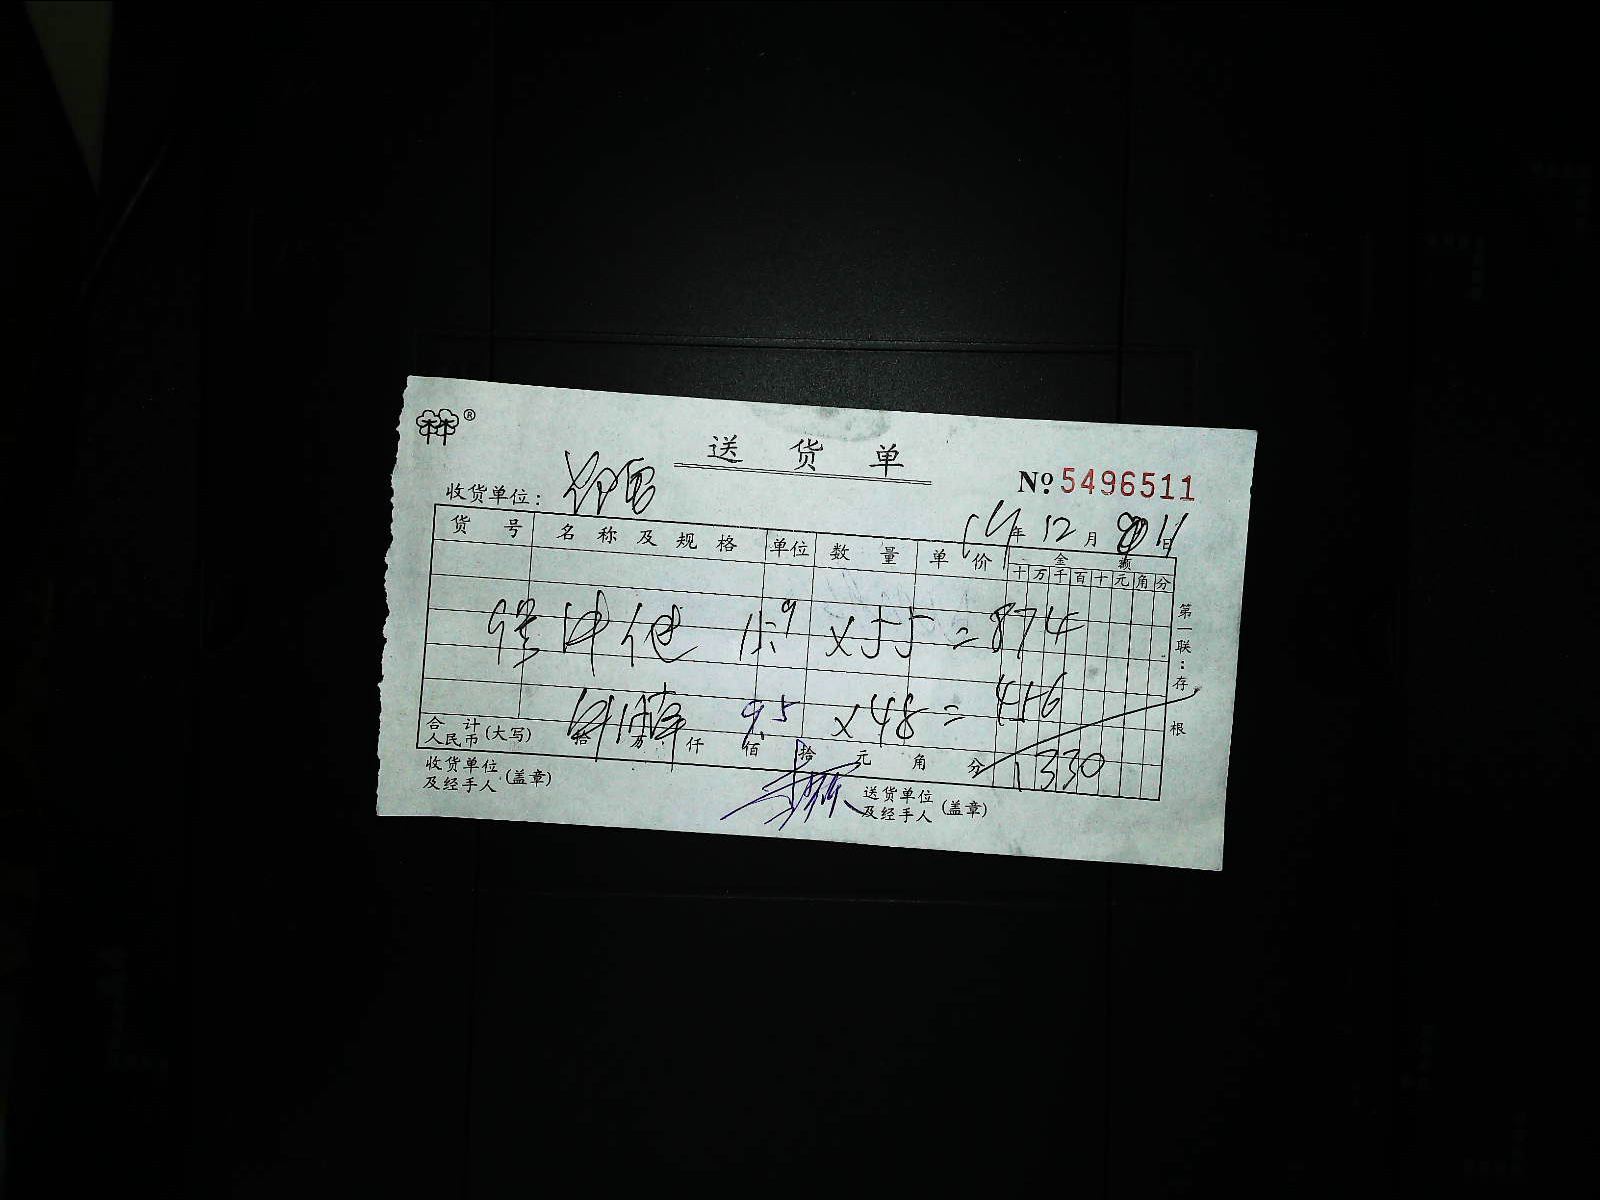 ®
送 货 单
№ 5496511
收货单位：
14年12月11日
货号 名称及规格 单位 数量 单价 金额
十万千百十元角分
15.9 ×55=874
9.5 ×48=456
合计人民币(大写) 拾 万 仟 佰 拾 元 角 分 1330
收货单位及经手人(盖章) 送货单位及经手人(盖章)
第一联：存根